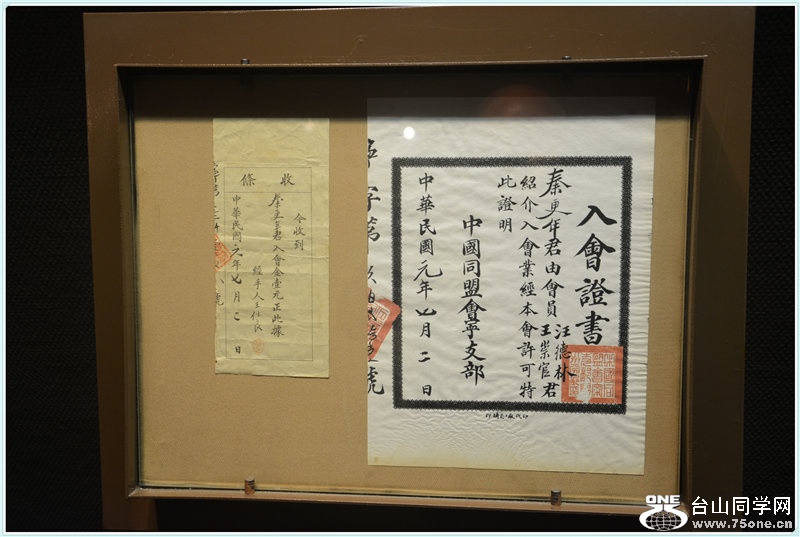 入會證書
秦更年君由會員
汪德林
王崇官
君
紹介入會業經本會許可特
此證明
中國同盟會寧支部
中華民國元年七月二日
收條
今收到
秦更年君入會金壹元正此據
經手人王仕
中華民國元年七月二日
ONE
台山同学网
www.75one.cn